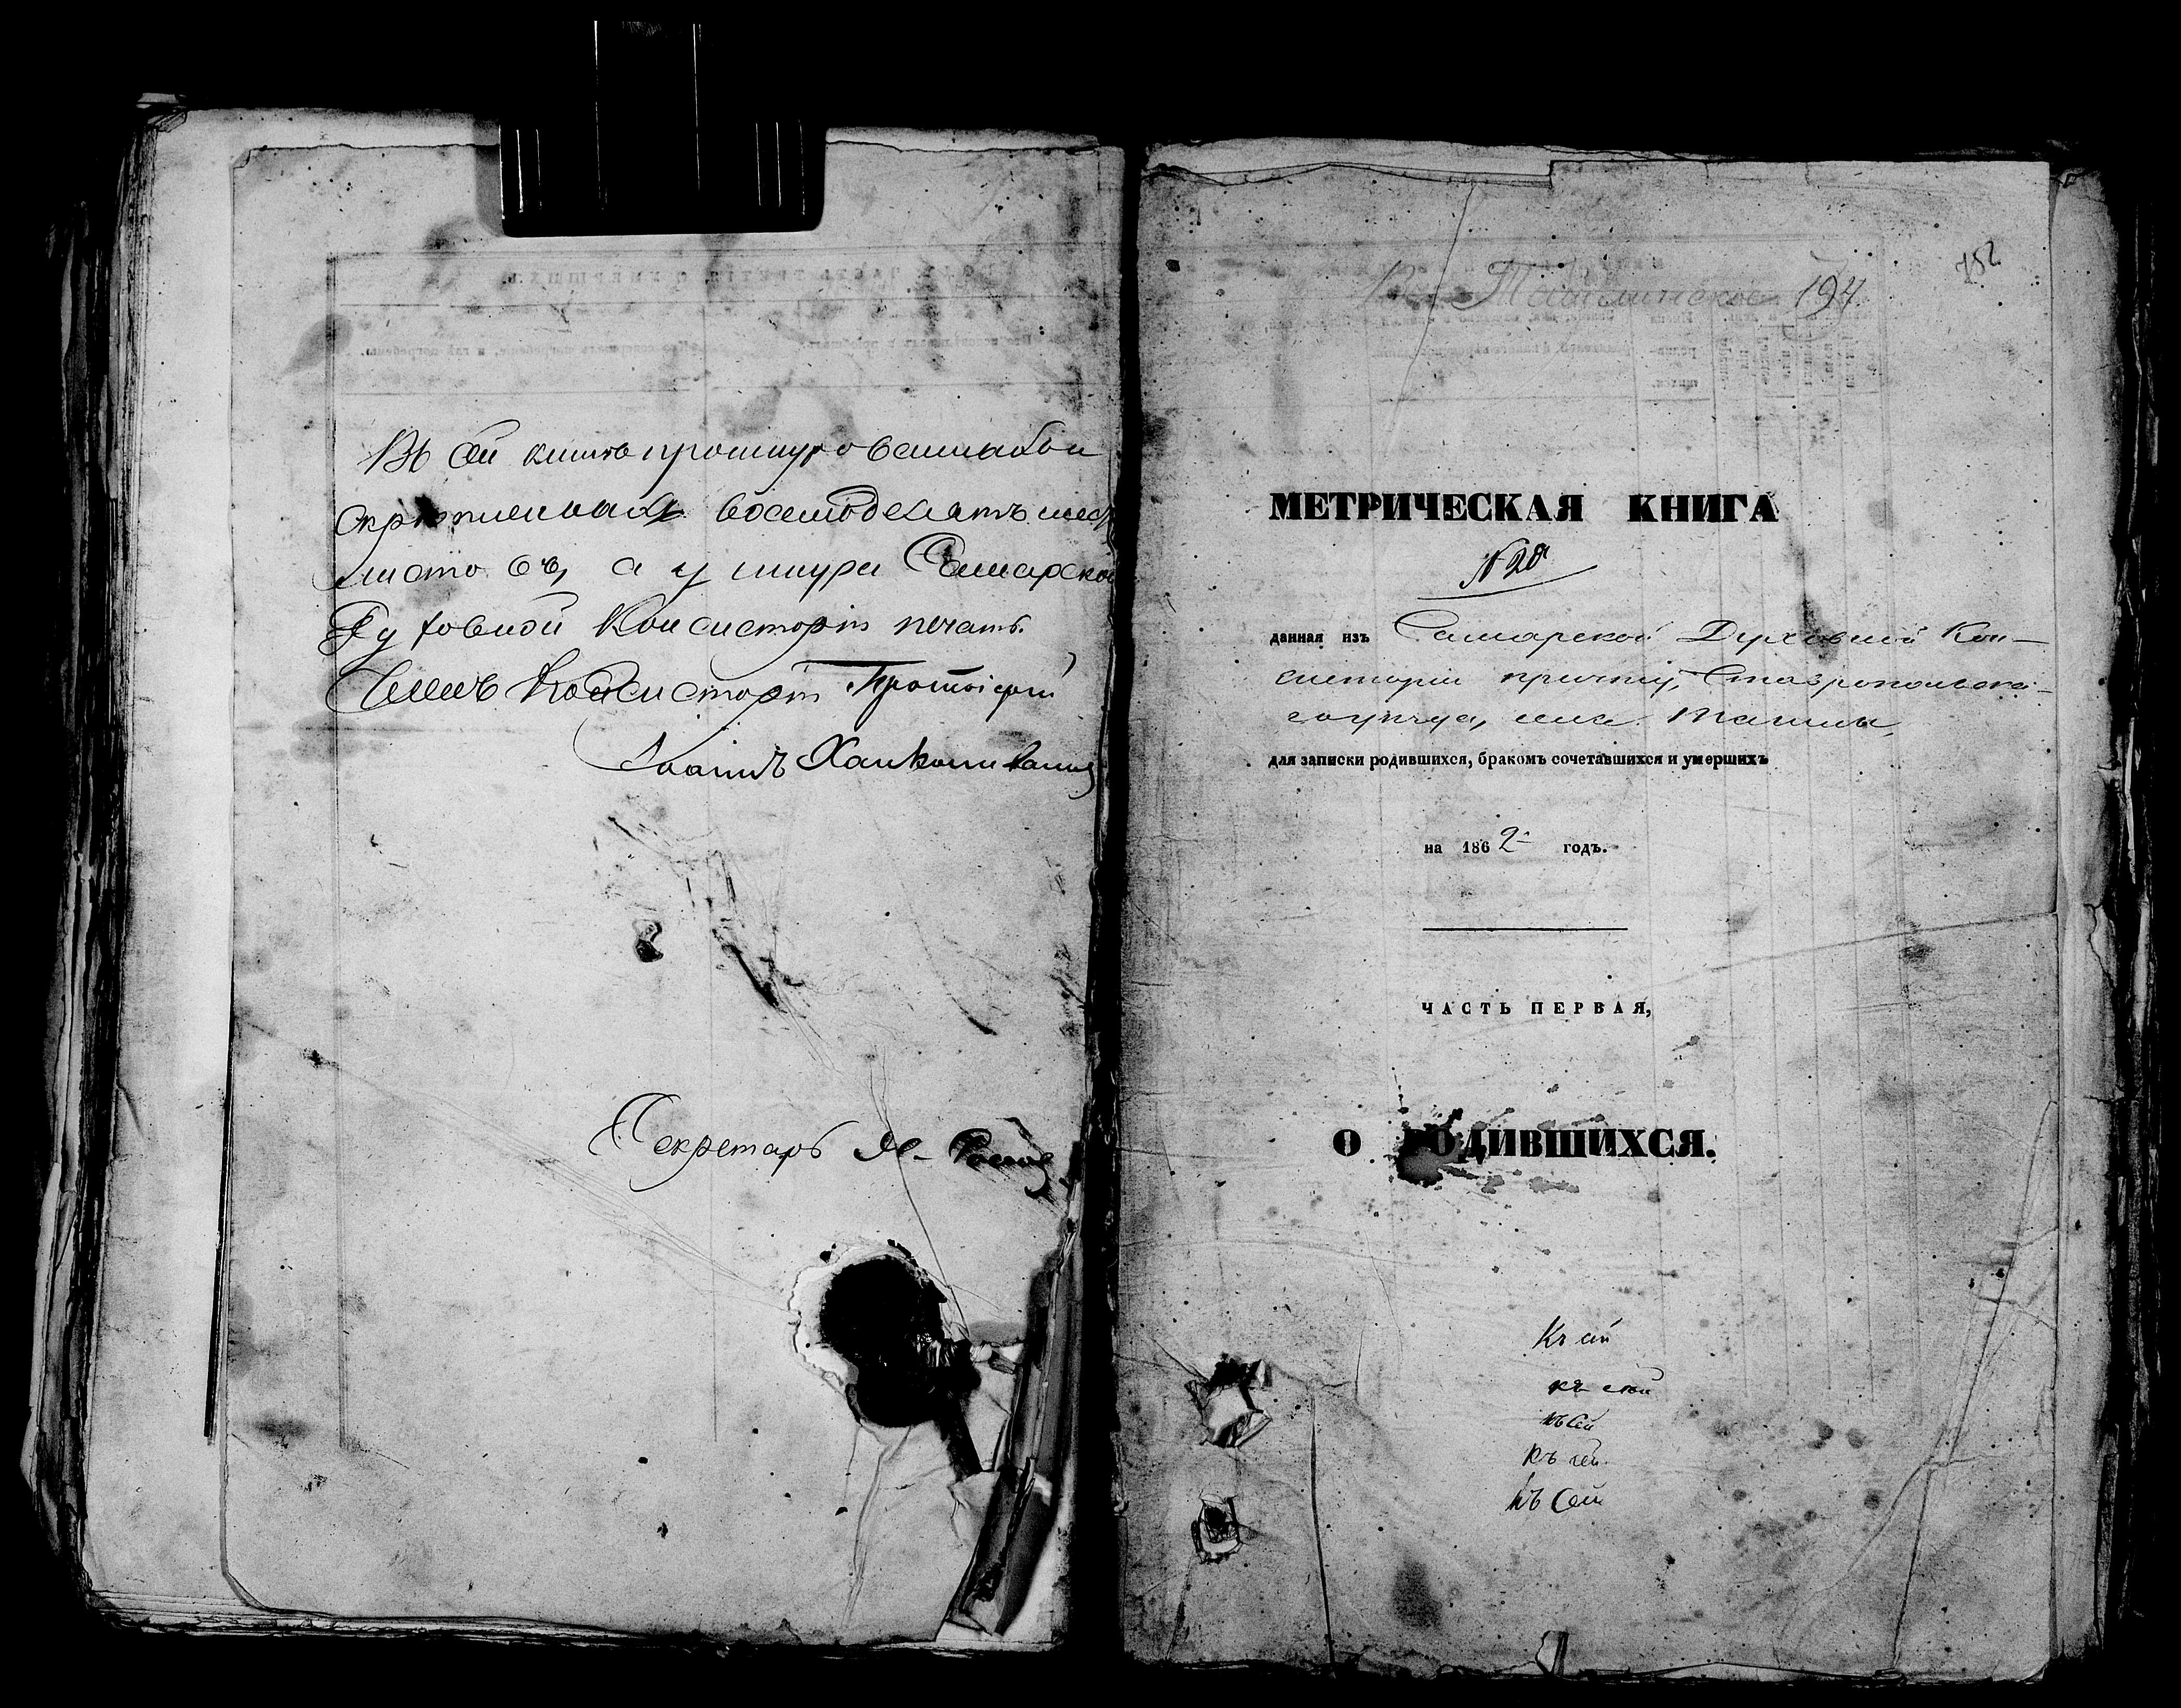 Въ сей книгѣ прошнурованныхъ и
скрѣпленныхъ восемьдесятъ шесть
листовъ, а у шнура Самарской
Духовной Консисторіи печать.
Членъ Консисторіи Протоіерей
Іоаннъ
Секретарь
152
Ташлинское 194
МЕТРИЧЕСКАЯ КНИГА
№ 28
данная изъ Самарской Духовной Кон-
систоріи причту, Ставропольска-
го уѣзда, села Ташлы,
для записки родившихся, бракомъ сочетавшихся и умершихъ
на 1862 годъ.
ЧАСТЬ ПЕРВАЯ,
О РОДИВШИХСЯ.
Къ сей
къ сей
къ сей
къ сей
къ сей